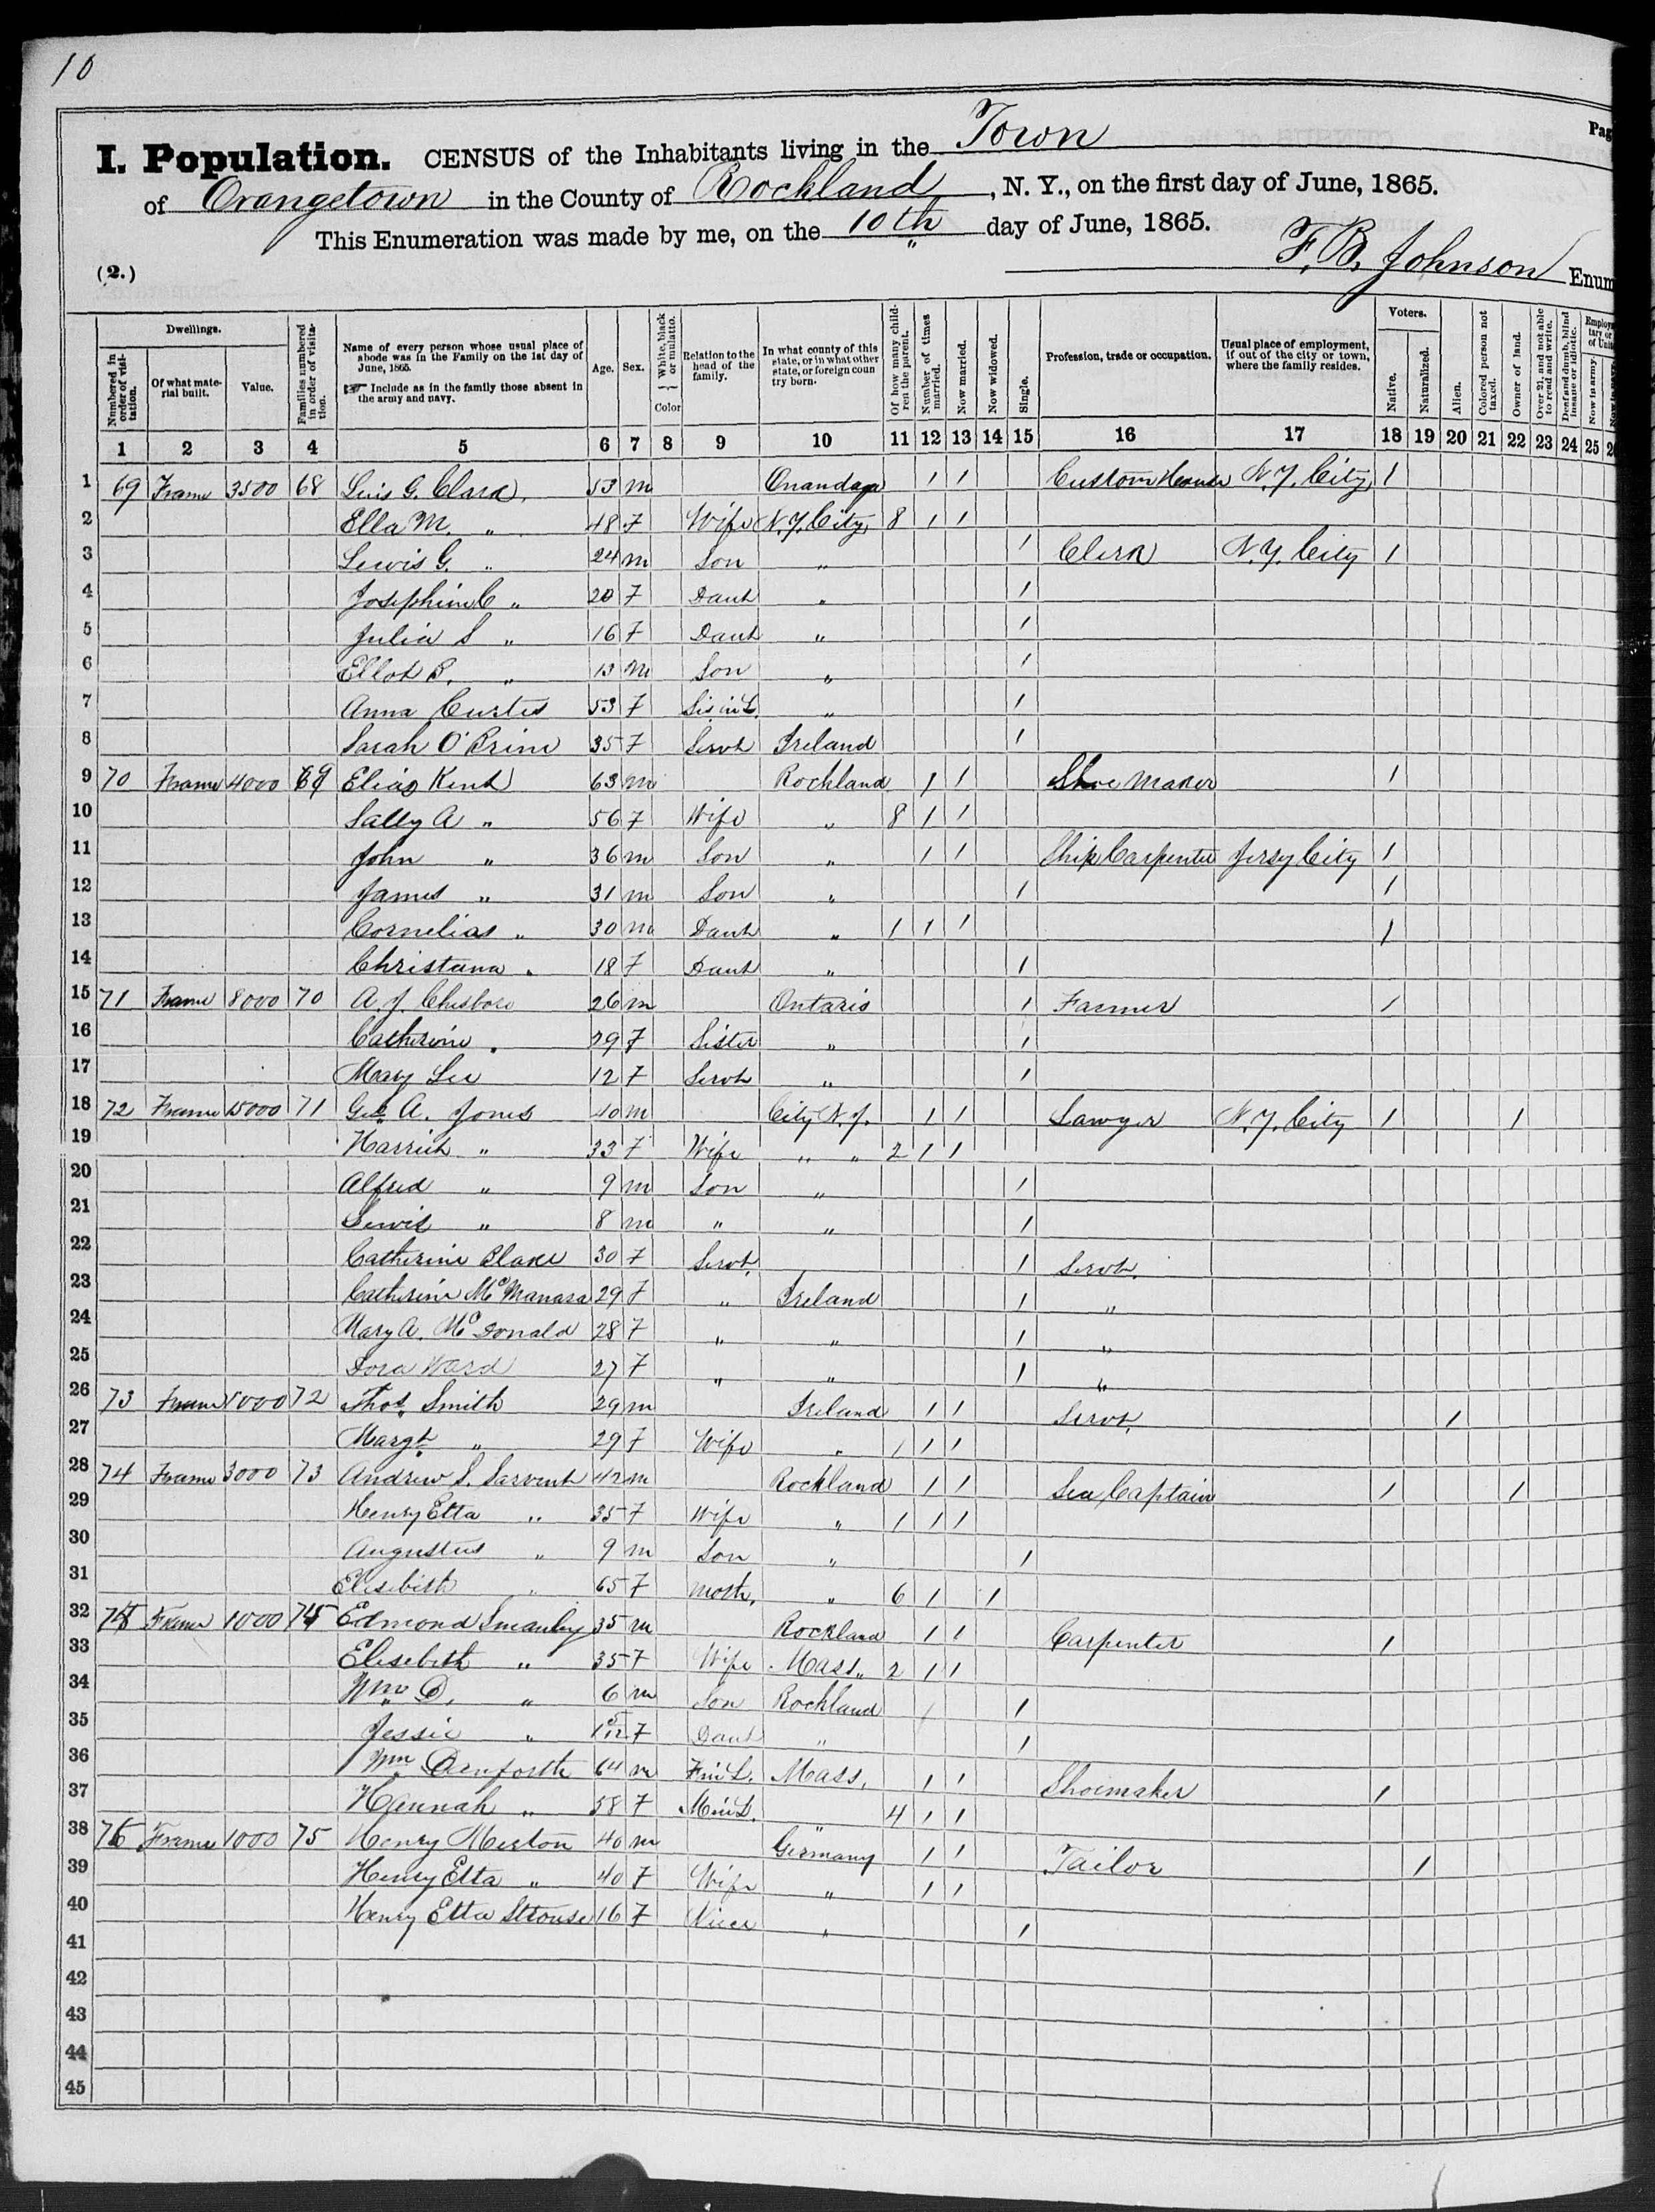 10
Pag
I. Population. CENSUS of the Inhabitants living in the Town
of Orangetown in the County of Rockland, N. Y., on the first day of June, 1865.
This Enumeration was made by me, on the 10th day of June, 1865.
(2.) F. B. Johnson Enum
Dwellings. Voters.
Numbered in order of visitation. Of what material built. Value. Families numbered in order of visitation. Name of every person whose usual place of abode was in the Family on the 1st day of June, 1865. Include as in the family those absent in the army and navy. Age. Sex. White, black or mulatto. Color Relation to the head of the family. In what county of this state, or in what other state, or foreign coun try born. Of how many children the parent. Number of times married. Now married. Now widowed. Single. Profession, trade or occupation. Usual place of employment, if out of the city or town, where the family resides. Native. Naturalized. Alien. Colored person not taxed. Owner of land. Over 21, and not able to read and write. Deaf and dumb, blind insane or idiotic. Now in army.
1 2 3 4 5 6 7 8 9 10 11 12 13 14 15 16 17 18 19 20 21 22 23 24 25
1 69 Frame 3500 68 Luis G. Clark 53 m Onandaga 1 1 Custom House N.Y. City 1
2 Ella M. " 48 F Wife N.Y. City 8 1 1
3 Lewis G. " 24 m Son " 1 Clerk N.Y. City 1
4 Josephine C " 20 F Daut " 1
5 Julia S " 16 F Daut " 1
6 Ellot B. " 13 m Son " 1
7 Anna Curtis 53 F Sis in L. " 1
8 Sarah O'Brine 35 F Servt Ireland 1
9 70 Frame 4000 69 Elias Kent 63 m Rockland 1 1 Shoe Maker 1
10 Sally A " 56 F Wife " 8 1 1
11 John " 36 m Son " 1 1 Ship Carpenter Jersy City 1
12 James " 31 m Son " 1 1
13 Cornelias " 30 m Daut " 1 1 1 1
14 Christana " 18 F Daut " 1
15 71 Frame 8000 70 A. J. Chesboro 26 m Ontario 1 Farmer 1
16 Catherine " 29 F Sister " 1
17 Mary Lee 12 F Servt " 1
18 72 Frame 15000 71 Geo A. Jones 40 m City N.Y. 1 1 Lawyer N.Y. City 1 1
19 Harriet " 33 F Wife " " 2 1 1
20 Alfred " 9 m Son " 1
21 Lewis " 8 m " " 1
22 Catherine Blake 30 F Servt. 1 Servt.
23 Catherine McManara 29 F " Ireland 1 "
24 Mary A. McDonald 28 F " " 1 "
25 Dora Ward 27 F " " 1 "
26 73 Frame 72 Thos. Smith 29 m Ireland 1 1 Servt. 1
27 Margt. " 29 F Wife " 1 1 1
28 74 Frame 3000 73 Andrew S. Sarvent 42 m Rockland 1 1 Sea Captain 1 1
29 Henry Etta " 35 F Wife " 1 1 1
30 Augustus " 9 m Son " 1
31 Elisebith " 65 F Moth. " 6 1 1
32 75 Frame 1000 74 Edmond 35 m Rockland 1 1 Carpenter 1
33 Elisebith " 35 F Wife Mass. 2 1 1
34 Wm D. " 6 m Son Rockland 1
35 Jessie " F Daut " 1
36 Wm Danforth 64 m F in L. Mass. 1 1 Shoemaker 1
37 Hannah " 58 F M in L. " 4 1 1
38 76 Frame 1000 75 Henry Merton 40 m Germany 1 1 Tailor 1
39 Henry Etta " 40 F Wife " 1 1
40 Henry Etta Strouse 16 F Niece " 1
41
42
43
44
45